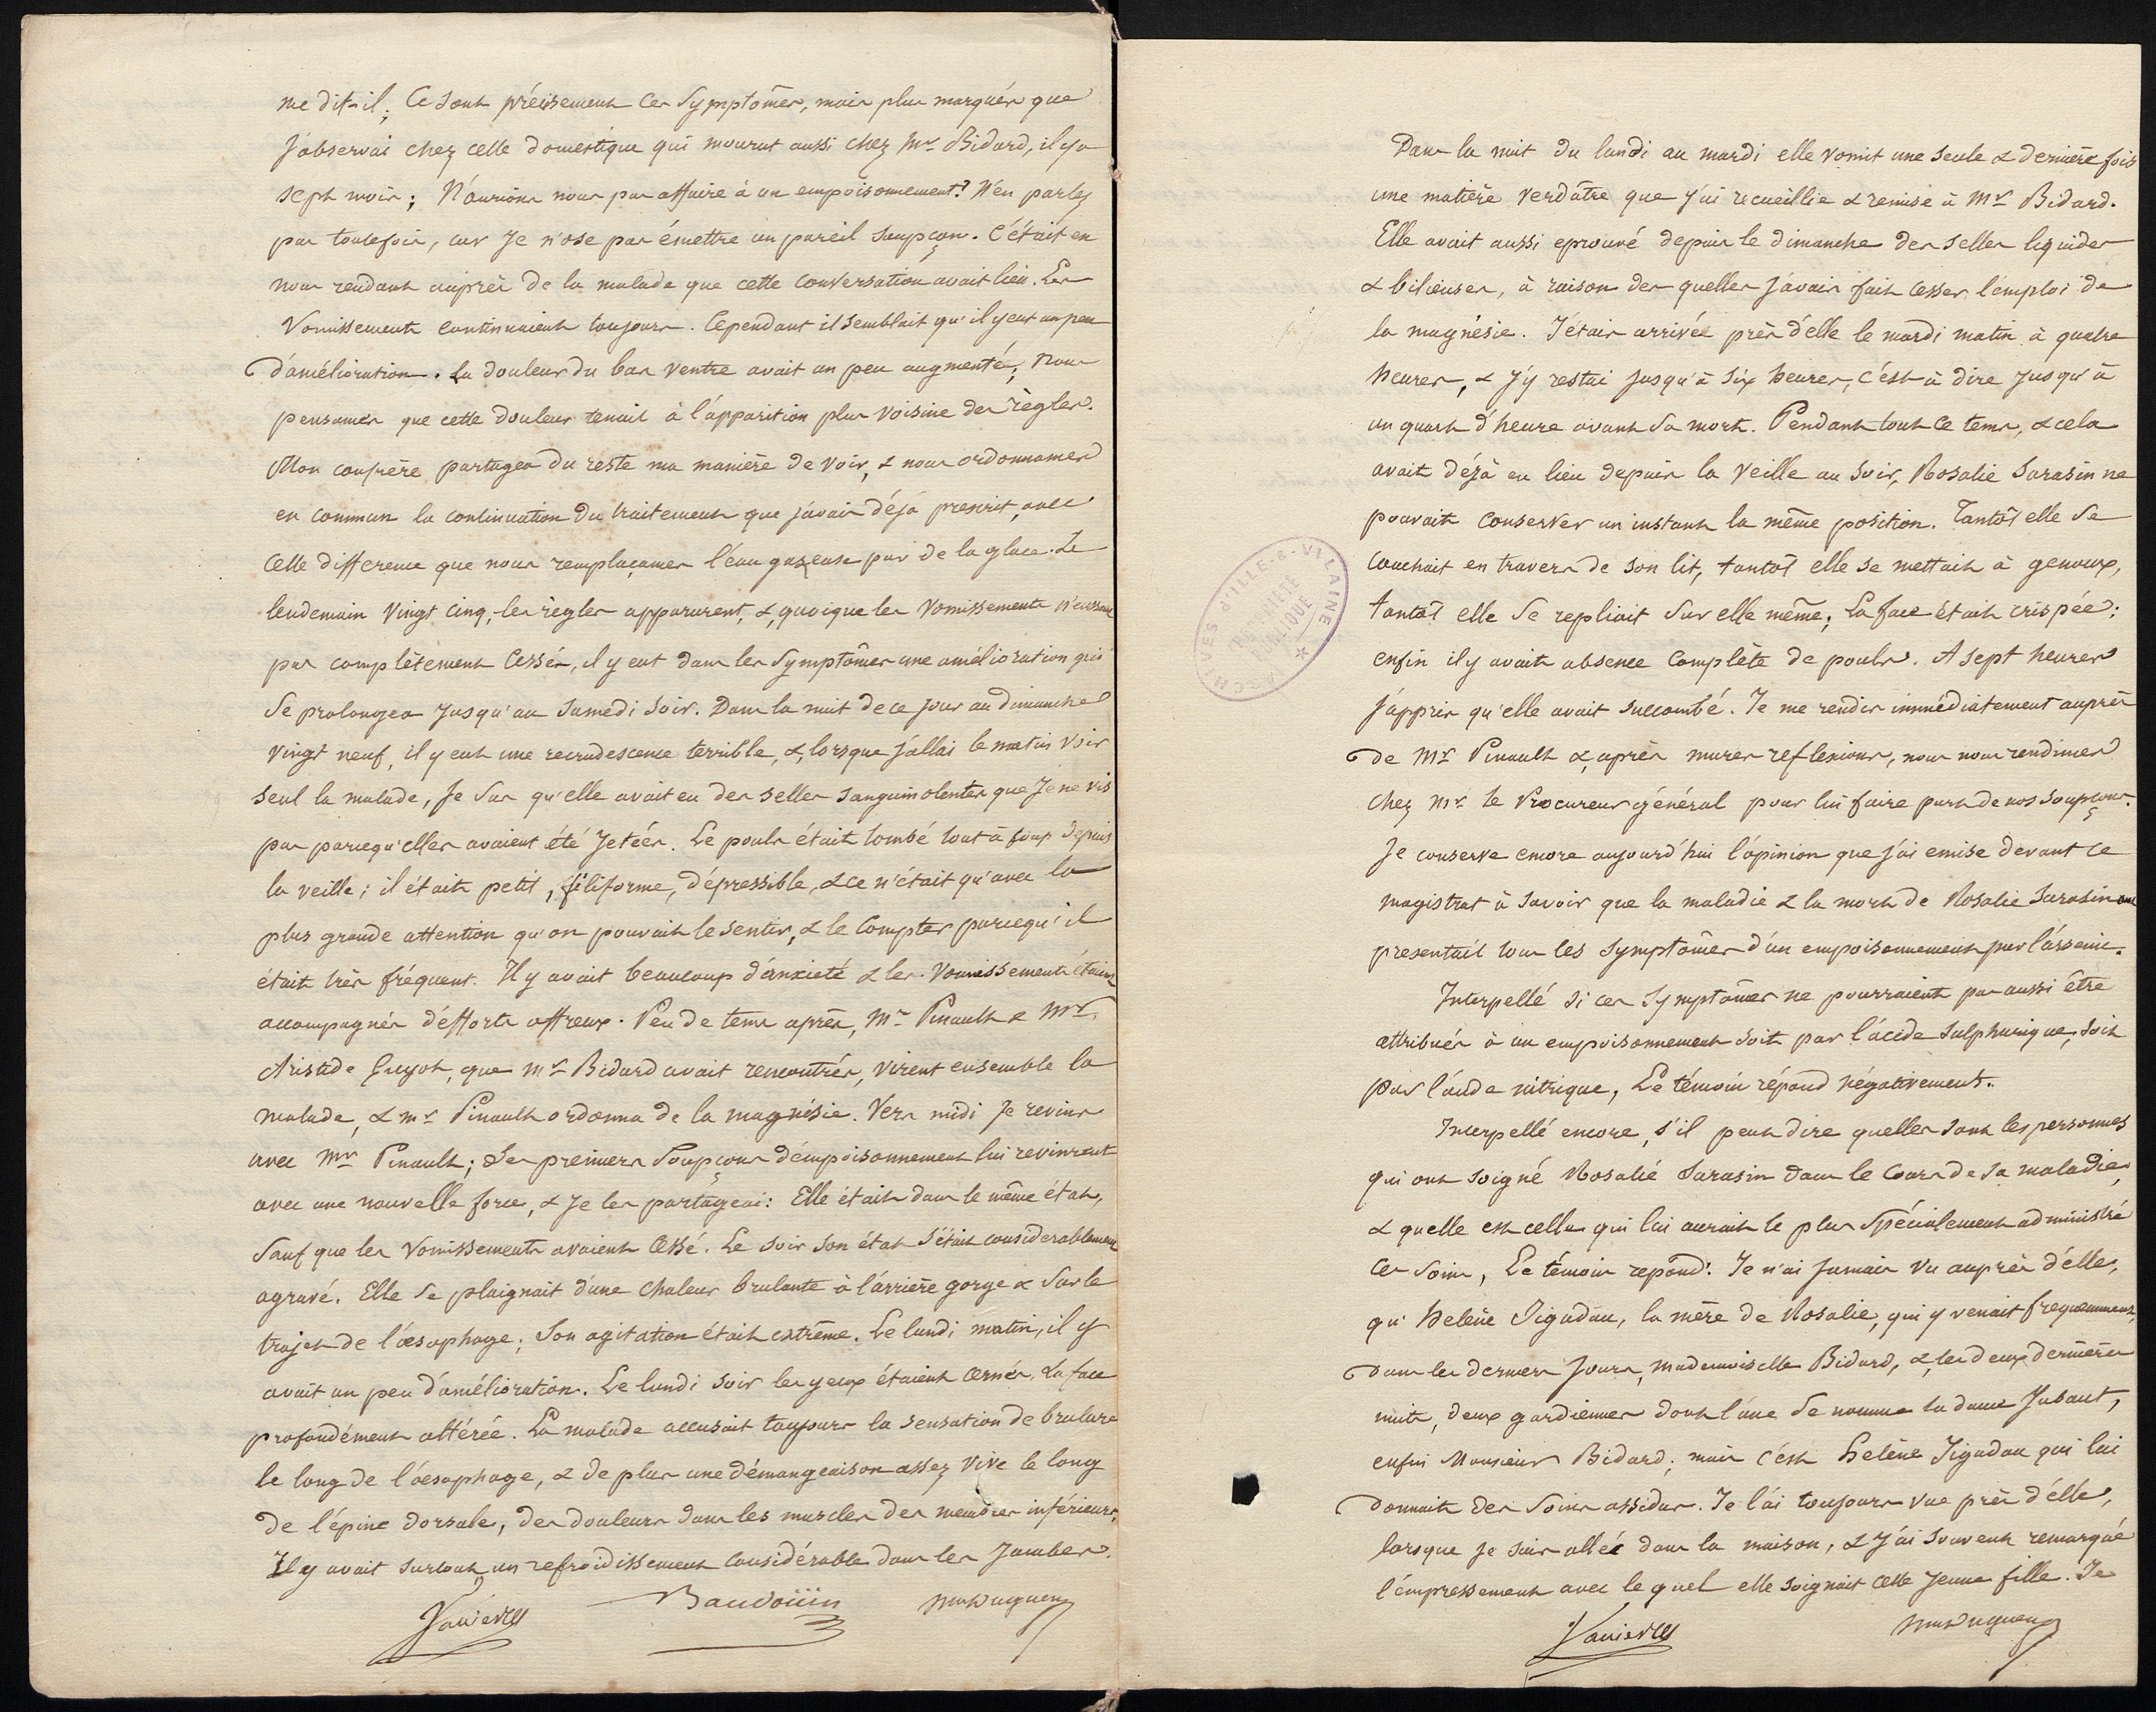 me dit-il; Ce sont précisement ces Symptômes, mais plus marqués que
J'observai chez celle domestique qui mourut aussi chez Mr. Bidard, il y a
sept mois; N'aurions nous pas affaire à un empoisonnement? N'en parlez
pas toutefois, car Je n'ose pas émettre un pareil soupçon. C'était en
nous rendant auprès de la malade que cette conversation avait lieu. Les
Vomissements continuaient toujours. Cependant il semblait qu'il y eut un peu
d'amélioration. La douleur du bas ventre avait un peu augmenté; Nous
pensames que cette douleur tenait à l'apparition plus voisine des règles.
Mon confrère partagea du reste ma manière de voir, & nous ordonnames
en commun la continuation du traitement que j'avais déjà prescrit, avec
Cette difference que nous remplaçames l'eau gazeuse par de la glace. Le
lendemain Vingt cinq, les règles apparurent, &, quoique les Vomissements n'eussent
pas complètement Cessés, il y eut dans les Symptômes une amélioration qui
Se prolongea Jusqu'au Samedi Soir. Dans la nuit de ce jour au dimanche
vingt neuf, il y eut une recrudescence terrible, &, lorsque J'allai le matin Voir
Seul la malade, Je Sus qu'elle avait eu des selles sanguinolentes que Je ne vis
pas parcequ'elles avaient été Jetées. Le pouls était tombé tout à coup depuis
la veille; il était petit, filiforme, dépressible, & ce n'était qu'avec la
plus grande attention qu'on pouvait le sentir, & le Compter parcequ'il
était très fréquent. Il y avait beaucoup d'anxieté & les Vomissements étaient
accompagnés d'efforts affreux. Peu de tems après, Mr Pinault & Mr.
Aristide Guyot, que Mr Bidard avait rencontrés, virent ensemble la
malade, & Mr Pinault ordonna de la magnésie. Vers midi Je revins
avec Mr Pinault; Ses premiers Soupçons d'empoisonnement lui revinrent
avec une nouvelle force, & Je les partageai: Elle était dans le même état,
Sauf que les Vomissements avaient Cessé. Le Soir Son état S'était considerablement
agravé. Elle Se plaignait d'une Chaleur brulante à l'arrière gorge & Sur le
trajet de l'œsophage; Son agitation était extrême. Le lundi matin, il y
avait un peu d'amélioration. Le lundi Soir les yeux étaient Cernés, La face
profondément altérée. La malade accusait toujours la sensation de brulure
le long de l'œsophage, & de plus une démangeaison assez Vive le long
de l'épine dorsale, des douleurs dans les muscles des membres inférieurs.
Il y avait surtout un refroidissement Considérable dans les Jambes.
Baudoüin
Dans la nuit du lundi au mardi elle vomit une Seule & dernière fois
une matière Verdâtre que J'ai recueillie & remise à Mr Bidard.
Elle avait aussi eprouvé depuis le dimanche des selles liquides
& bilieuses, à raison des quelles J'avais fait Cesser l'emploi de
la magnésie. J'étais arrivée près d'elle le mardi matin à quatre
heures, & J'y restai Jusqu'à Six heures, C'est à dire Jusqu'à
un quart d'heure avant Sa mort. Pendant tout Ce tems, & cela
avait déjà eu lieu depuis la Veille au Soir, Rosalie Sarasin ne
pouvait Conserver un instant la même position. Tantôt elle Se
Couchait en travers de Son lit, tantôt elle Se mettait à genoux,
tantôt elle Se repliait Sur elle même; La face était crispée;
enfin il y avait absence Complète de pouls. A Sept heures
J'appris qu'elle avait Succombé. Je me rendis immédiatement auprès
de Mr Pinault &, après mures reflexions, nous nous rendimes
Chez Mr. le Procureur général pour lui faire part de nos Soupçons.
Je conserve encore aujourd'hui l'opinion que J'ai emise devant Ce
magistrat à Savoir que la maladie & la mort de Rosalie Sarasin
presentait tous les Symptômes d'un empoisonnement par l'arsenic.
Interpellé Si ces Symptômes ne pourraient pas aussi être
attribués à un empoisonnement Soit par l'acide Sulphurique, Soit
par l'acide nitrique, Le témoin répond négativement.
Interpellé encore, s'il peut dire quelles Sont les personnes
qui ont Soigné Rosalie Sarasin dans le Cours de Sa maladie,
& quelle est celle qui lui aurait le plus Spécialement administré
Ces Soins, Le témoin repond: Je n'ai Jamais Vu auprès d'elle,
qu'Helène Jigadau, la mère de Rosalie, qui y venait frequemment,
Dans les derniers Jours, mademoiselle Bidard, &, les deux dernières
nuits, deux gardiennes dont l'une Se nomme la dame Jubaut,
enfin Monsieur Bidard; mais C'est Helène Jigadau qui lui
donnait des Soins assidus. Je l'ai toujours Vue près d'elle,
lorsque Je Suis allée dans la maison, & J'ai Souvent remarqué
l'empressement avec lequel elle Soignait Cette Jeune fille. Je
ARCHIVES d'ILLE-&-VILAINE
PROPRIÉTÉ
PUBLIQUE